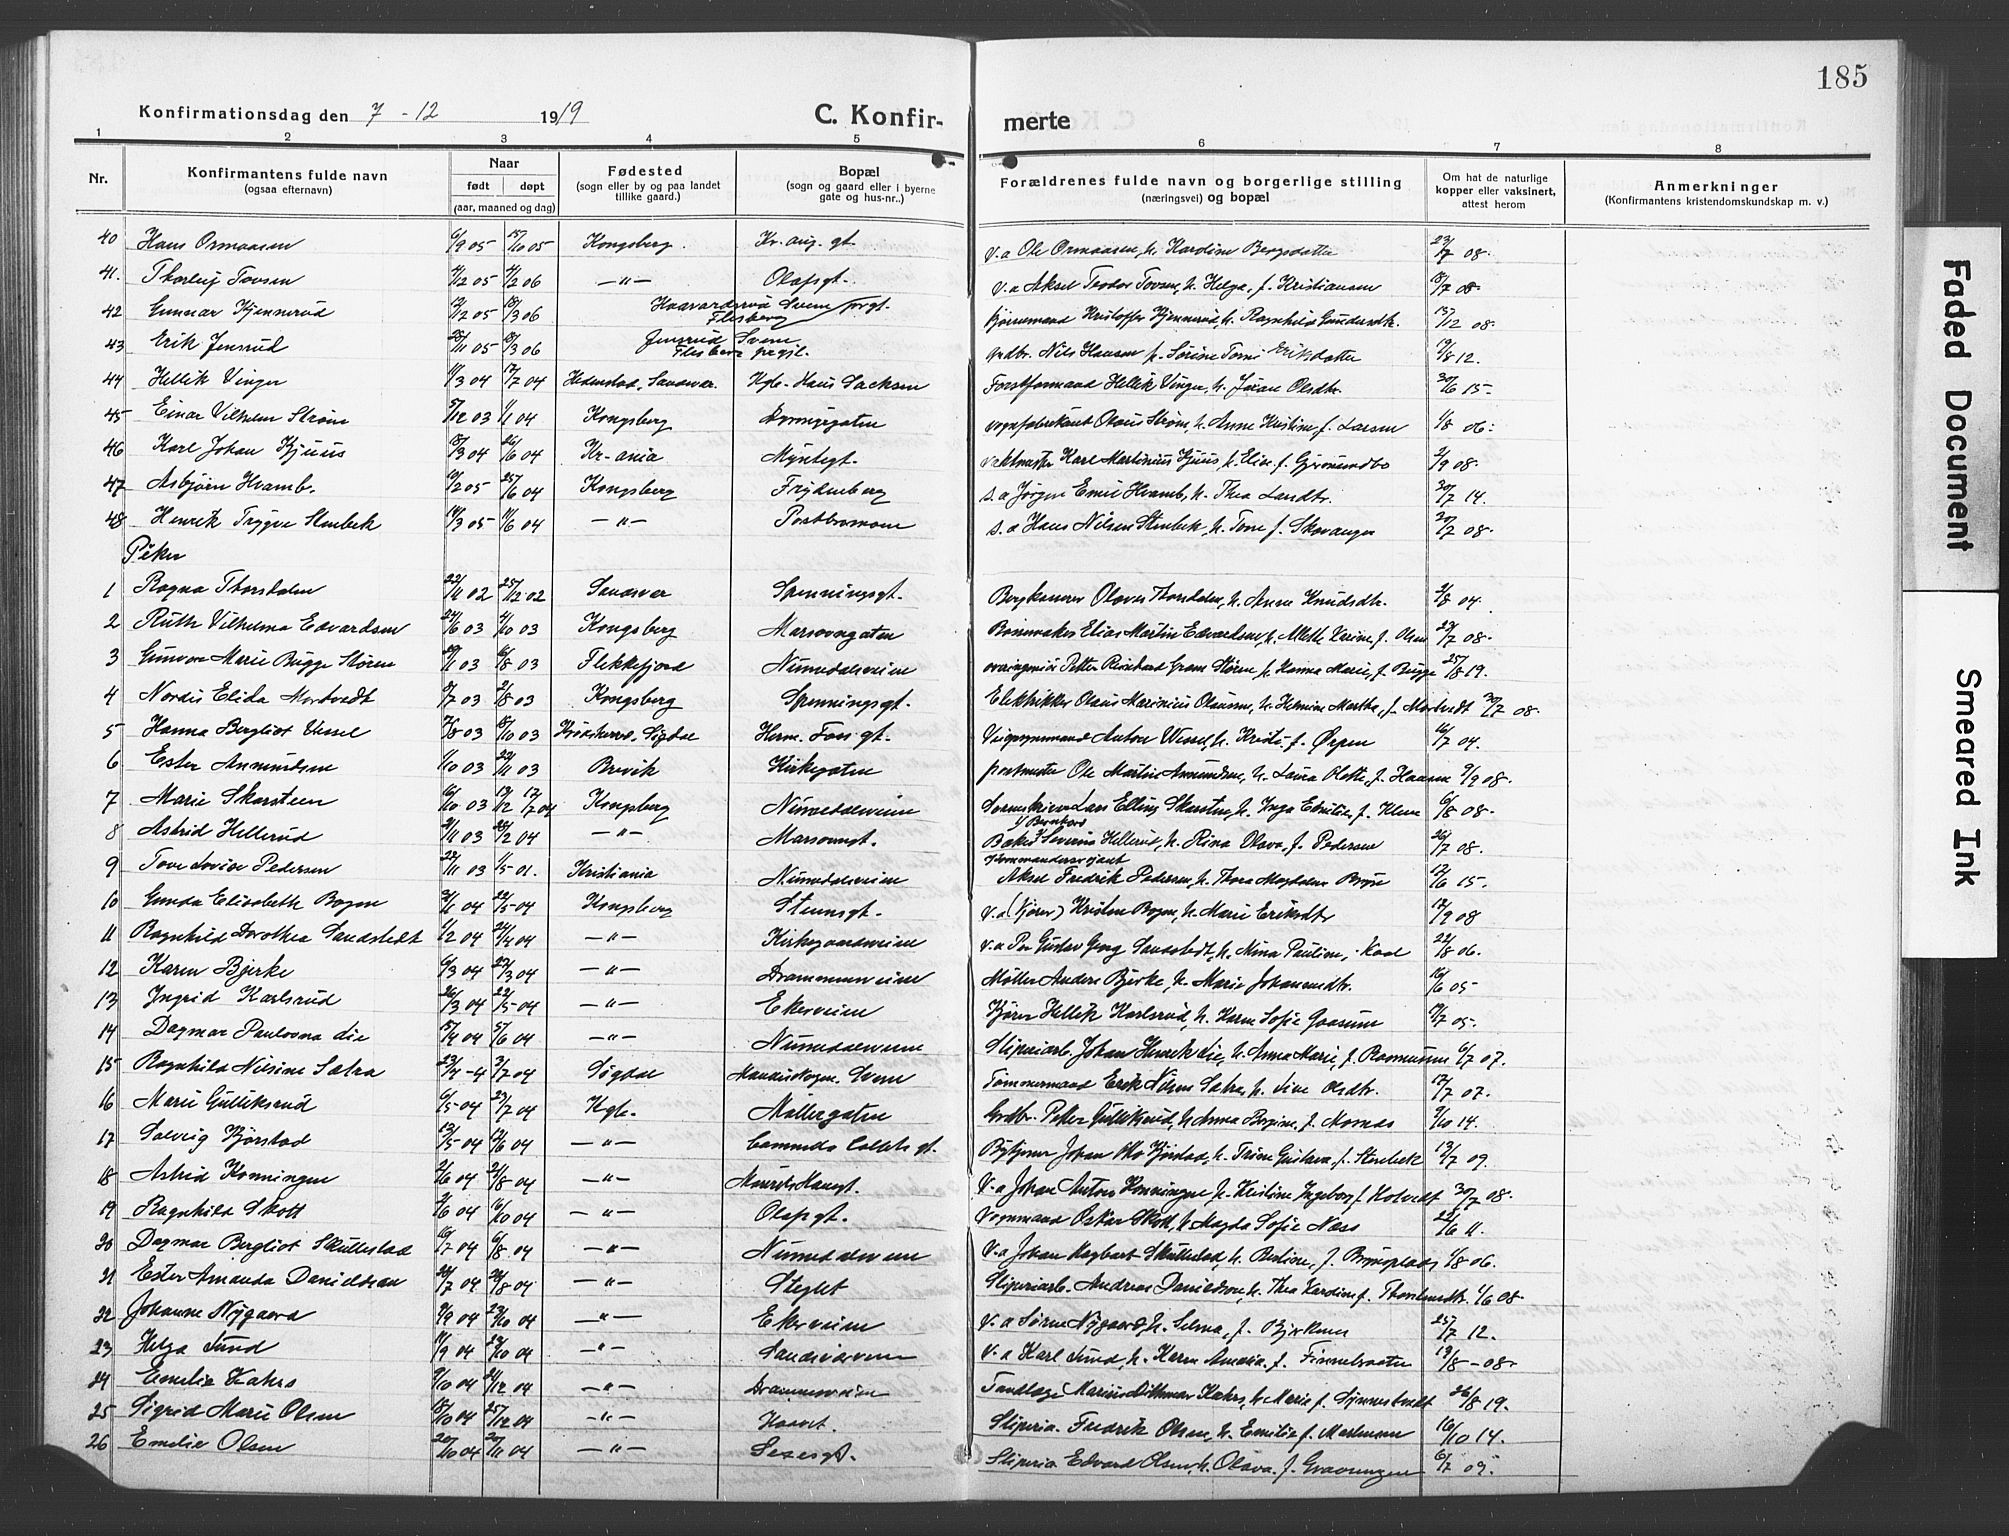 185
Konfirmationsdag den 7-12 1919 C. Konfir- merte
1 2 3 4 5 6 7 8
Nr. Konfirmantens fulde navn (ogsaa efternavn) Naar født døpt (aar, maaned og dag) Fødested (sogn eller by og paa landet tillike gaard.) Bopæl (sogn og gaard eller i byerne gate og hus-nr..) Forældrenes fulde navn og borgerlige stilling (næringsvei) og bopæl Om hat de naturlige kopper eller vaksinert, attest herom Anmerkninger (Konfirmantens kristendomskundskap m. v.)
40 Hans Ormaasen 6/9 05 15/10 05 Kongsberg Kr. aug. gt. v.a Ole Ormaasen, h. Karoline Bergsdatter 23/7 08.
41. Thorleif Tovsen 4/12 05 4/2 06 —"— Olafsgt. v.a Aksel Teodor Tovsen, h. Helga, f. Kristiansen 18/7 08.
42 Gunnar Kjennerud 12/12 05 18/3 06 Haavardsrud Svene Flesberg Kristoffer Kjennerud, h. Ragnhild Gundersdtr. 13/12 08.
43 Erik Jensrud 28/11 05 18/3 06 Jensrud Svene Flesberg prgjl. Grdbr. Nils Hansen h. Sørine Torni Eriksdatter 19/8 12.
44 Hellik Vinger 11/3 04 17/7 04 Hedenstad, Sandsvær. Kgb. Haus Sachsen Forstformand Hellik Vinger, h. Jøran Olsdtr. 30/6 15-
45 Einar Vilhelm Strøm 5/12 03 1/1 04 Kongsberg Dronnigaten vognfabrikant Olaus Strøm, h. Anne Kristine f. Larsen 1/8 06.
46 Karl Johan Kjuus 18/3 04 26/6 04 Kr-ania Myntgt. vaktmester Karl Martinius Kjuus, h. Elise f. Gjermundbo 2/9 08.
47 Asbjørn Hvamb. 10/2 05 25/6 04 Kongsberg Frydenberg s.a Jørgen Emil Hvamb, h. Thea Landtr. 30/7 14.
48 Henrik Trygve Stenbek 14/3 05 11/6 04 —"— Postbromoen s.a Hans Nilsen Stenbek, h. Tone f. Skavanger 30/7 08.
Piker
1 Ragna Thorsdalen 22/11 02 25/12 02 Sandsvær Spenningsgt. Bergkanner Olaves Thorsdalen, h. Anne Knudsdtr. 3/8 04.
2 Ruth Vilhelma Edvardsen 24/6 03 4/10 03 Kongsberg Marsovngaten Elias Martin Edvardsen, h. Mette Karine, f. Olsen 23/7 08.
3 Gunvor Marie Bugge Støren 29/1 03 6/8 03 Flekkefjord Numedalsveien Petter Reinhard Gram Støren, h. Hanna Marie, f. Bugge 25/8 19.
4 Nordis Elida Mortvedt 5/7 03 2/8 03 Kongsberg Spenningsgt. Elektrikker Olaus Marinius Olaussen, h. Helmine Martha, f. Mortvedt 30/7 08.
5 Hanna Bergliot Vessel 7/8 03 18/10 03 Sigdal Herm. Foss gt. Anton Wessel, h. Kristi f. Ørpen 16/7 04.
6 Ester Amundsen 1/10 03 22/11 03 Brevik Kirkegaten postmester Ole Martin Amundsen, h. Laura Olette, f. Hansen 9/9 08.
7 Marie Skarsteen 6/10 03 13/12 17/7 04 Kongsberg Numedalsveien Lars Elling Skarsteen, h. Inga Emilie, f. Klem 6/8 08.
8 Astrid Hellerud 2/11 03 28/2 04 —"— Marsovngt. Baker Severin Hellerud, h. Rina Olava, f. Pedersen 26/7 08.
9 Tove Lovise Pedersen 22/11 03 1/5 01. Kristiania Numedalsveien Kommandersersjant Aksel Fredrik Pedersen, h. Thora Magdalene Bryn 12/6 15.
10 Gunda Elisabeth Bogen 3/1 04 22/5 04 Kongsberg Steensgt. v.a (kjører) Kristen Bogen, h. Marie Eriksdtr 17/9 08
11 Ragnhild Dorothea Sandstedt 1/2 04 24/4 04 —"— Kirkegaardsveien v.a Per Gustav Georg Sandstedt, h. Nina Pauline, Kaal 22/8 06.
12 Karen Bjerke 6/3 04 27/3 04 —"— Drammensveien Møller Anders Bjerke, h. Marie Johannesdtr. 16/6 05
13 Ingrid Karlsrud 26/3 04 22/5 04 —"— Ekerveien Kjører Hellik Karlsrud, h. Karen Sofie Gaasum 17/7 05.
14 Dagmar Paulovna Lie 15/4 04 5/6 04 —"— Numedalsveien Sliperiarb. Johan Henrik Lie, h. Anna Marie, f. Rasmussen 6/7 07.
15 Ragnhild Nilsine Sætra 23/4 -4 3/7 04 Sigdal Svene Tømmermand Erik Nilsen Sætra, h. Live Olsdtr. 17/7 07.
16 Marie Gulliksrud 6/5 04 23/7 04 Kgb. Møllergaten Grdbr. Peter Gulliksrud, h. Anna Bergine, f. Mornæs 9/10 14.
17 Solveig Kjørstad 13/5 04 12/6 04 —"— Gammeda Colletts gt. Bytjener Johan Kjørstad, h. Trine Gustava, f. Stenbek 13/7 09.
18 Astrid Konningen 2/6 04 21/8 04 —"— Maurits Hansgt. v.a Johan Anton Konningen, h. Kristine Ingeborg f. Hotvedt 30/7 08.
19 Ragnhild Skott 3/6 04 16/10 04 —"— Olafsgt. Vognmand Oskar Skott, h. Magda Sofie Næss 22/6 11.
20 Dagmar Bergliot Skullestad 16/7 04 6/8 04 —"— Numedalsveien v.a Johan Hagbart Skullestad, h. Bertine, f. Brynsplads 1/8 06.
21 Ester Amanda Danielsen 20/7 04 28/8 04 —"— Steglet Sliperiarb. Andreas Danielsen, h. Thea Karoline f. Thorsensdtr. 1/6 08.
22 Johanne Nygaard 9/9 04 23/10 04 —"— Ekerveien v.a Søren Nygaard, h. Selma, f. Bjerknes 25/7 12.
23 Helga Lund 11/9 04 23/10 04 —"— Sandsværveien v.a Karl Lund, h. Karen Amalia, f. Finnebraaten 19/8 -08.
24 Emelie Kahrs 9/10 04 24/12 04 —"— Drammensveien Tandlæge Marius Dithmar Kahrs, h. Marie f. Synnestvedt 26/8 19.
25 Sigrid Marie Olsen 18/10 04 25/12 04 —"— Haavet. Sliperia. Fredrik Olsen, h. Emilie f. Martinsen 16/10 14.
26 Emelie Olsen 20/10 04 20/11 04 —"— Sesesgt. Sliperia Edvard Olsen, h. Olava f. Gravningen 6/7 05.
Faded Document
Smeared Ink